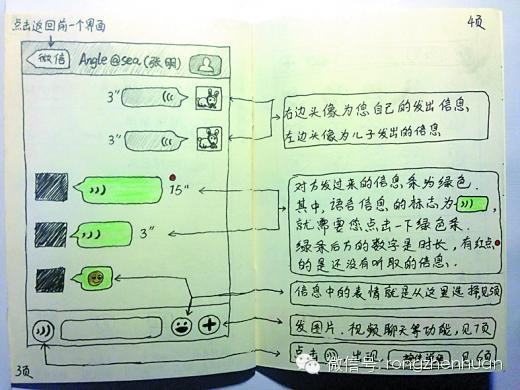 点击返回前一个界面
微信
Angle@sea(张明)
3"
3"
15"
3"
3页
4页
右边头像为您自己的发出信息、
左边头像为儿子发出的信息
对方发过来的信息条为绿色.
其中,语音信息的标志为
就需要您点击一下绿色条.
绿条后方的数字是时长,有红点
的是还没有听取的信息.
信息中的表情就是从这里选择见5页
发图片、视频聊天等功能,见7页
点击 出现, 见6页
微信号: rongzhenhuan